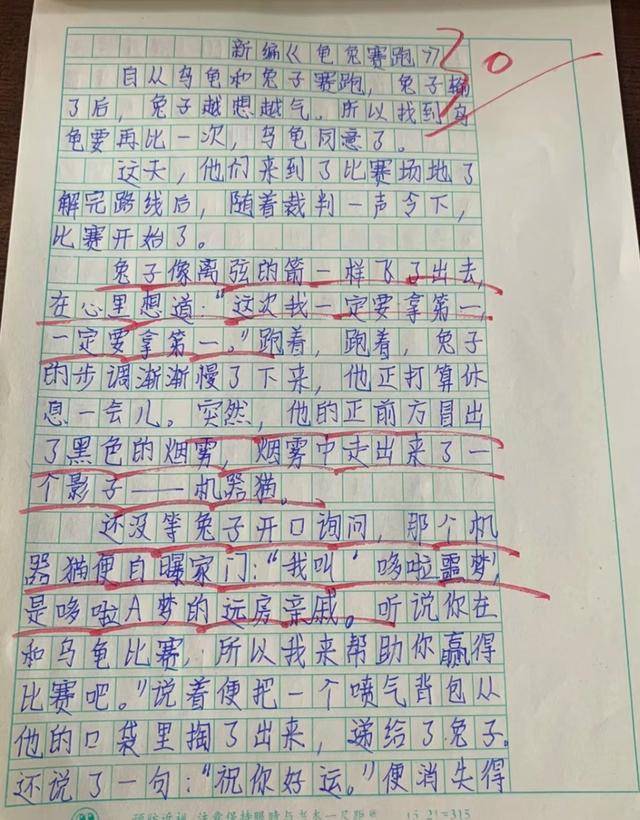 新编《龟兔赛跑》
30
自从乌龟和兔子赛跑，兔子输
了后，兔子越想越气。所以找到乌
龟要再比一次，乌龟同意了。
这天，他们来到了比赛场地了
解完路线后，随着裁判一声令下，
比赛开始了。
兔子像离弦的箭一样飞了出去，
在心里想道：“这次我一定要拿第一，
一定要拿第一。”跑着，跑着，兔子
的步调渐渐慢了下来，他正打算休
息一会儿。突然，他的正前方冒出
了黑色的烟雾，烟雾中走出来了一
个影子——机器猫。
还没等兔子开口询问，那个机
器猫便自曝家门：“我叫‘哆啦噩梦’，
是哆啦A梦的远房亲戚。听说你在
和乌龟比赛，所以我来帮助你赢得
比赛吧。”说着便把一个喷气背包从
他的口袋里掏了出来，递给了兔子。
还说了一句：“祝你好运。”便消失得
15×21=315